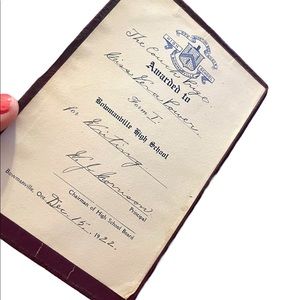 The Couch Prize.
Awarded to
Form I.
Bowmanville High School
for Writing
Principal
Chairman of High School Board
Bowmanville, Ont. Dec. 15, 1922.